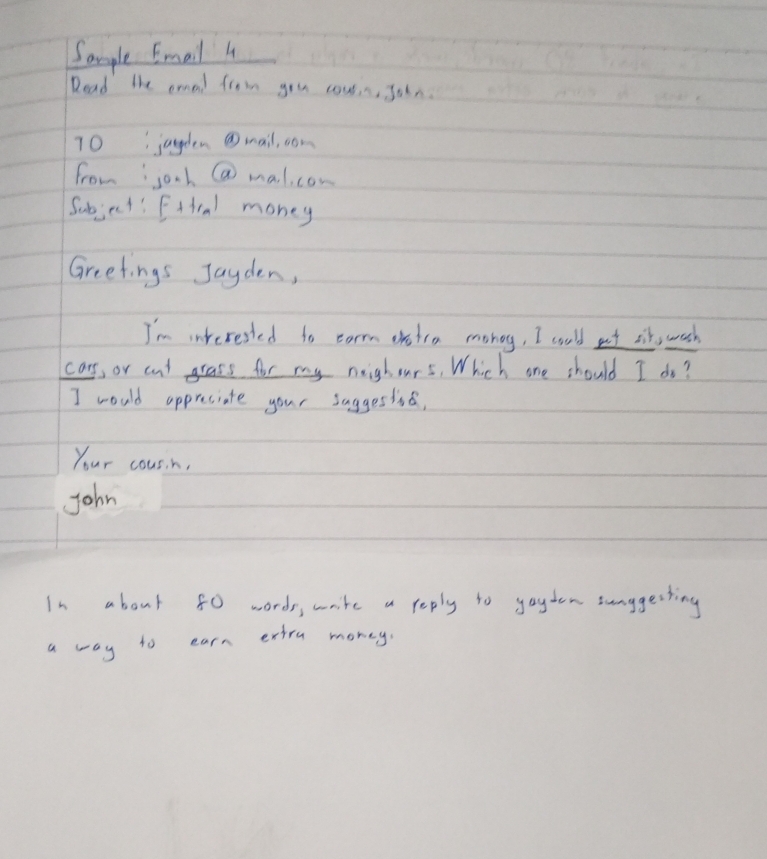 Sample Email 4
Read the email from you cousin, John.
TO : jayden @mail.com
From : josh @ mal.com
Subject: Extral money
Greetings Jayden,
I'm interested to earn extra money, I could pet sit, wash
cars, or cut grass for my neighours. Which one should I do?
I would appreciate your suggestio
Your cousin,
John
In about 80 words, write a reply to yayden sunggesting
a way to earn extra money.